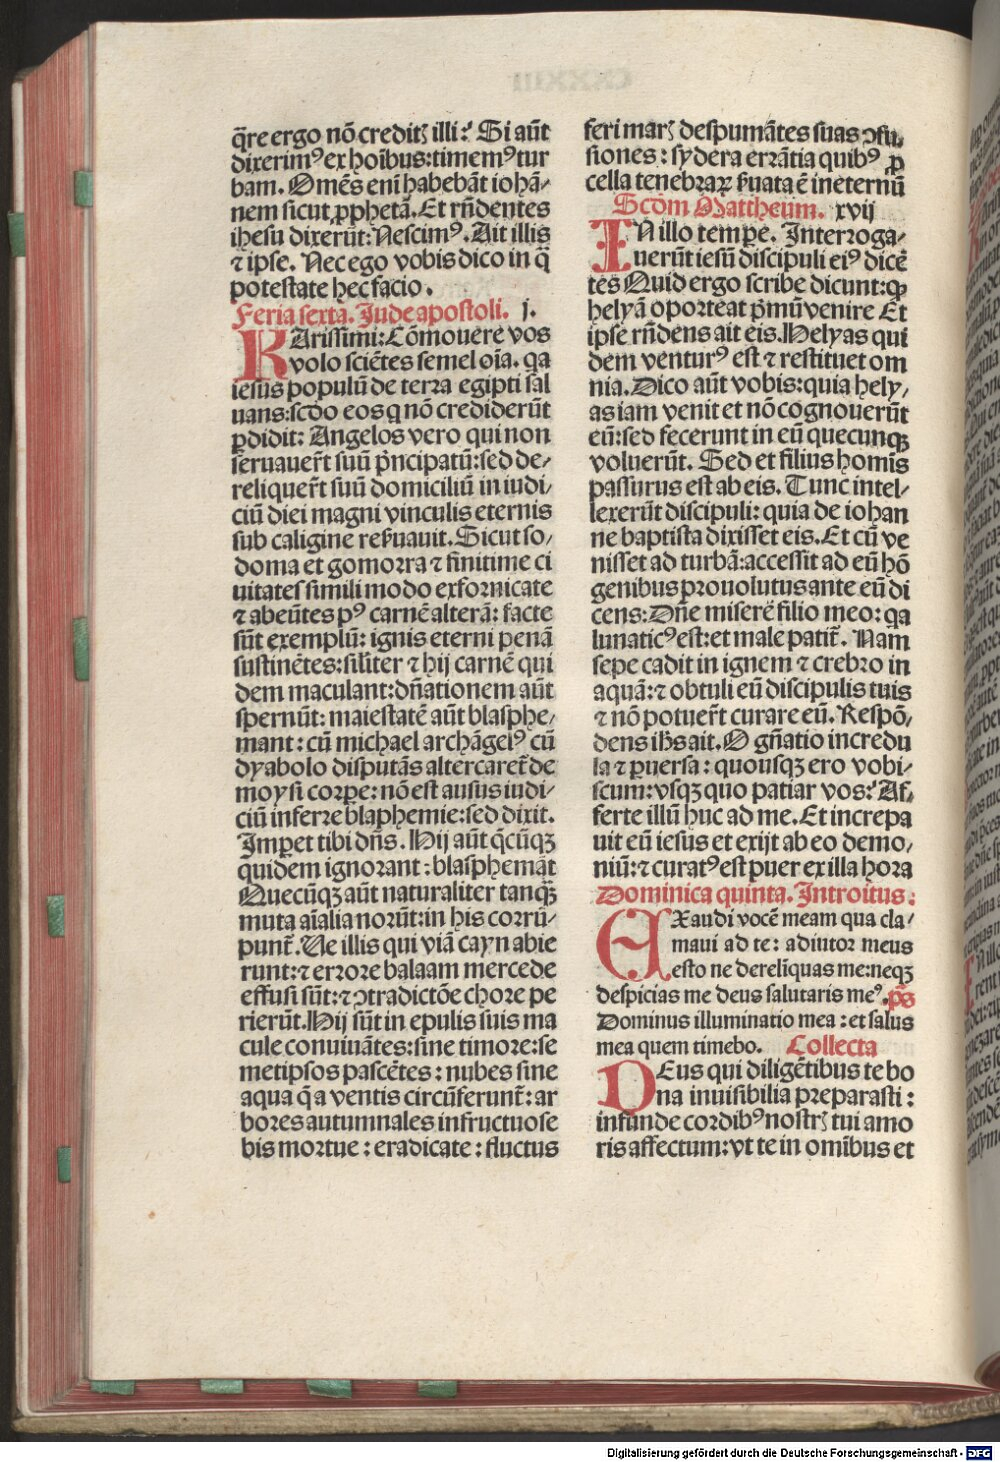 q̄re ergo nō creditꝫ illi? Si aūt
dixerimꝰ ex hoībus: timemꝰ tur
bam. Omēs enī habebāt iohā/
nem sicut ꝓphetā. Et rn̄dentes
ihesu dixerūt: Nescimꝰ. Ait illis
⁊ ipse. Nec ego vobis dico in q̄
potestate hec facio.
Feria sexta. Jude apostoli. j.
KArissimi: Cōmouere vos
volo sciētes semel oīa. qa
iesus populū de terra egipti sal
uans: scdo eos q nō crediderūt
ꝑdidit: Angelos vero qui non
seruauer̄t suū pⁱncipatū: sed de/
reliquer̄t suū domiciliū in iudi/
ciū diei magni vinculis eternis
sub caligine reẜuauit. Sicut so/
doma et gomorra ⁊ finitime ci
uitates simili modo exfornicate
⁊ abeūtes pꝰ carnē alterā: facte
sūt exemplū: ignis eterni penā
sustinētes: sil̄iter ⁊ hij carnē qui
dem maculant: dn̄ationem aūt
spernūt: maiestatē aūt blasphe/
mant: cū michael archāgelꝰ cū
dyabolo disputās altercaret̄ de
moysi corpe: nō est ausus iudi/
ciū inferre blaphemie: sed dixit.
Imꝑet tibi dn̄s. Hij aūt q̄cūqꝫ
quidem ignorant: blasphemāt
Quecūqꝫ aūt naturaliter tanqꝫ̄
muta aīalia norūt: in his corrū/
punt̄. Ve illis qui viā cayn abie
runt: ⁊ errore balaam mercede
effusi sūt: ⁊ ꝯtradictōe chore pe
rierūt. Hij sūt in epulis suis ma
cule conuiuātes: sine timore: se
metipsos pascētes: nubes sine
aqua q̄ a ventis circūferunt̄: ar
bores autumnales infructuose
bis mortue: eradicate: fluctus
feri marꝫ despumātes suas ꝯfu/
siones: sydera errātia quibꝰ ꝓ
cella tenebraꝝ ẜuata ē in eternū
Scdm Mattheum. xvij
IN illo tempe. Interroga/
uerūt iesū discipuli eiꝰ dicē
tes Quid ergo scribe dicunt: ꝙ
helyā oporteat pⁱmū venire Et
ipse rn̄dens ait eis. Helyas qui
dem venturꝰ est ⁊ restituet om
nia. Dico aūt vobis: quia hely/
as iam venit et nō cognouerūt
eū: sed fecerunt in eū quecunqꝫ
voluerūt. Sed et filius homīs
passurus est ab eis. Tunc intel/
lexerūt discipuli: quia de iohan
ne baptista dixisset eis. Et cū ve
nisset ad turbā: accessit ad eū hō
genibus prouolutus ante eū di
cens: Dn̄e miserē filio meo: qa
lunaticꝰ est: et male patit̄. Nam
sepe cadit in ignem ⁊ crebro in
aquā: ⁊ obtuli eū discipulis tuis
⁊ nō potuer̄t curare eū. Respō/
dens ih̄s ait. O gn̄atio incredu
la ⁊ ꝑuersa: quousqꝫ ero vobi/
scum: vsqꝫ quo patiar vos? Af/
ferte illū huc ad me. Et increpa
uit eū iesus et exijt ab eo demo/
niū: ⁊ curatꝰ est puer ex illa hora
Dominica quinta. Introitus:
EXaudi vocē meam qua cla/
maui ad te: adiutor meus
esto ne derelīquas me: neqꝫ
despicias me deus salutaris meꝰ. ps̄
Dominus illuminatio mea: et salus
mea quem timebo. Collecta
DEus qui diligētibus te bo
na inuisibilia preparasti:
infunde cordibꝰ nostrꝫ tui amo
ris affectum: vt te in omībus et
Digitalisierung gefördert durch die Deutsche Forschungsgemeinschaft - DFG